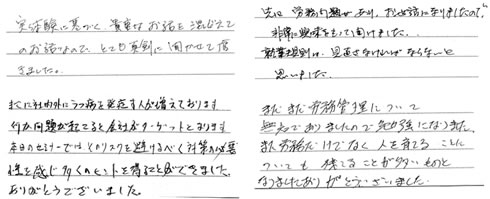 実体験に基づく、貴重なお話を混ぜえて
のお話なので、とても真剣に聞かせて頂
きました。
まさに社内外にうつ病を発症す人が増えております
何か問題が起こると会社がターゲットとなります
本日のセミナーではそのリスクを避けるべく対策の必要
性を感じ多くのヒントを得ることができました。
ありがとうございました。
先に労務問題があり、お世話になりましたので、
非常に興味をもって聞けました。
就業規則は、見直さなければならないと
思いました。
まだまだ労務管理について
無知でありましたので勉強になりました。
また労務だけでなく人を育てることに
ついても残てることが多いものと
なりましたありがとうございました。